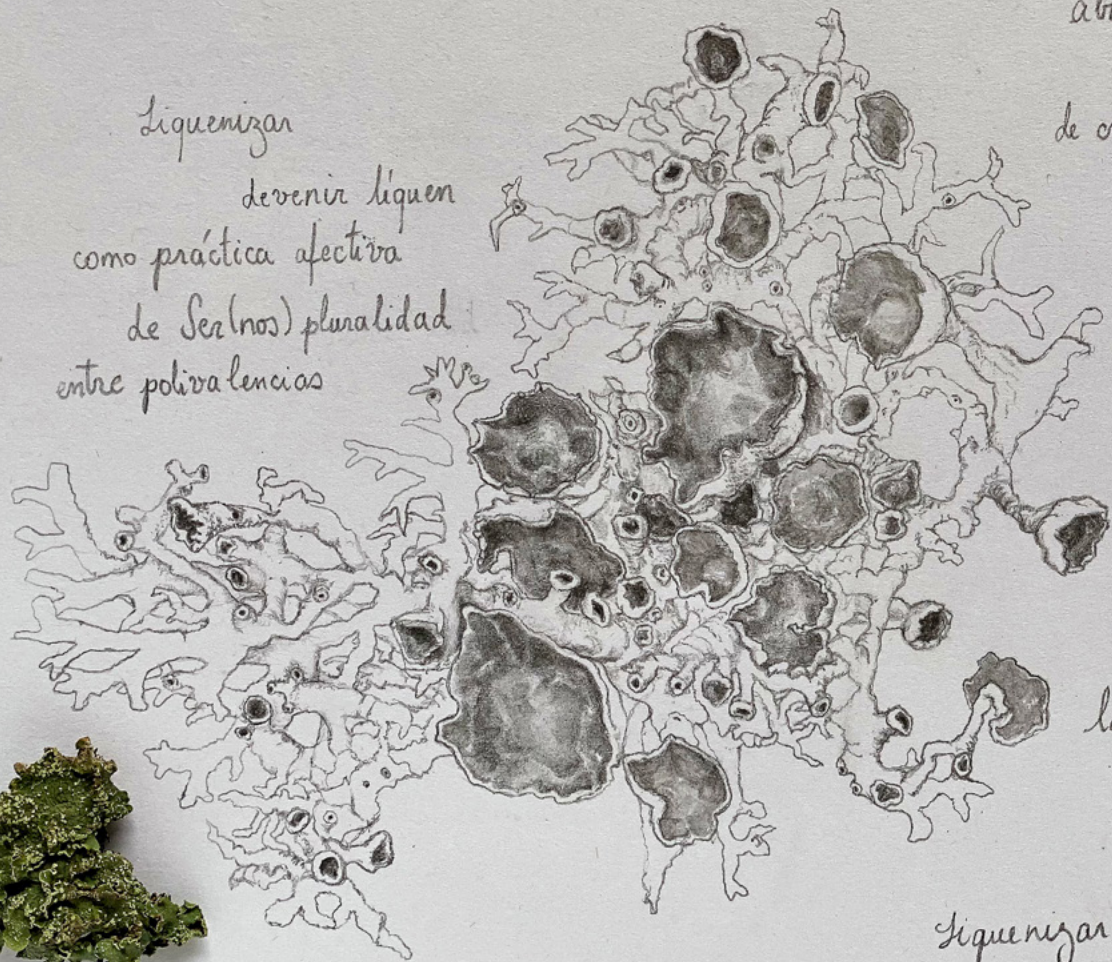 Liquenizar
devenir líquen
como práctica afectiva
de Ser(nos) pluralidad
entre polivalencias
Liquenizar